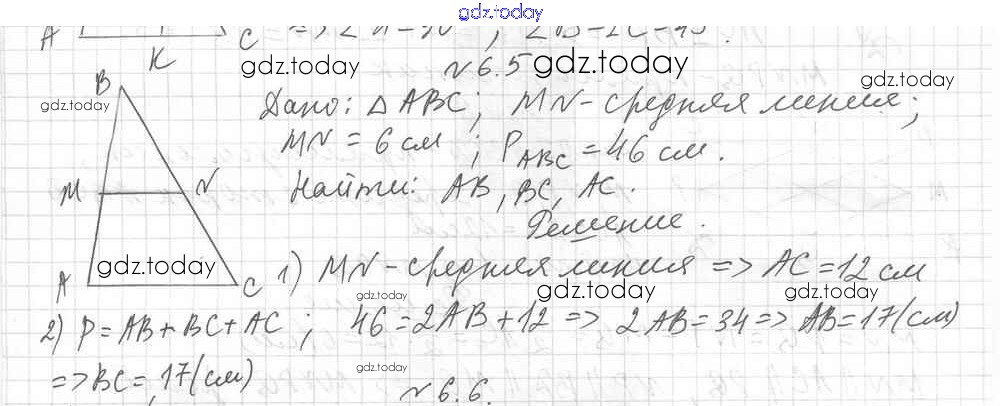 gdz.today
A K C => ∠A = 90°; ∠B = ∠C = 45°.
gdz.today №6.5 gdz.today gdz.today
B
gdz.today
Дано: △ABC; MN - средняя линия;
MN = 6 см; P_ABC = 46 см.
M N Найти: AB, BC, AC.
Решение.
gdz.today
A C 1) MN - средняя линия => AC = 12 см
gdz.today gdz.today gdz.today
2) P = AB + BC + AC; 46 = 2AB + 12 => 2AB = 34 => AB = 17 (см)
=> BC = 17 (см) gdz.today
№6.6.